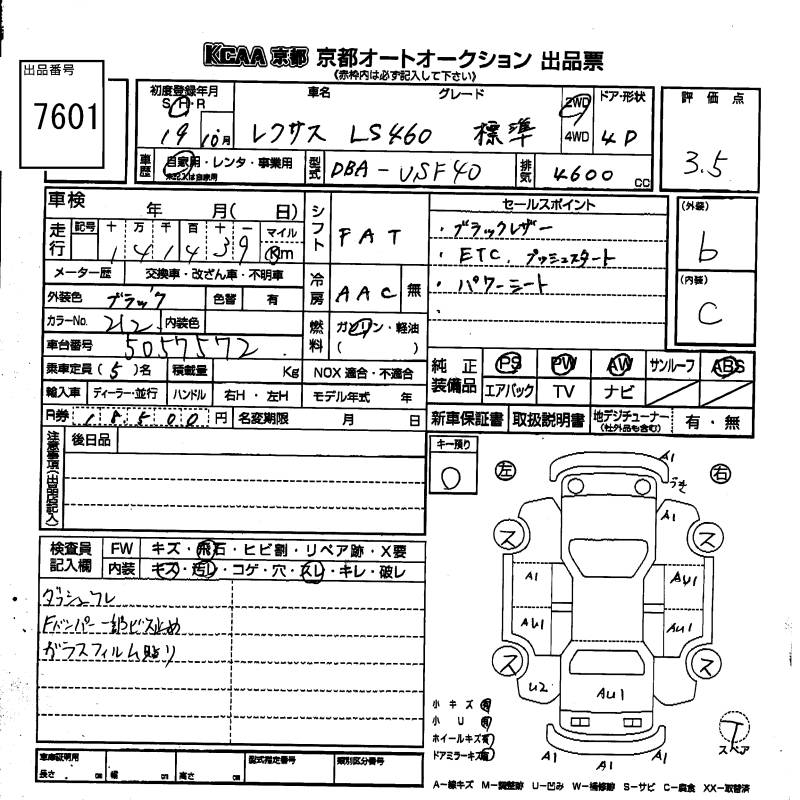 KCAA 京都 京都オートオークション 出品票
《赤枠内は必ず記入して下さい》
出品番号
7601
初度登録年月
S・H・R
19 10月
車名
グレード
レクサス LS460 標準
2WD
4WD
ドア・形状
4D
評価点
3.5
車歴
自家用・レンタ・事業用
型式
DBA-USF40
排気
4600 cc
車検 年 月( 日)
走行
記号 十 万 千 百 十 一 マイル
1 4 1 4 3 9 Km
メーター歴 交換車・改ざん車・不明車
外装色 ブラック 色替 有
カラーNo. 212 内装色
車台番号 5057572
乗車定員 (5)名 積載量 Kg
輸入車 ディーラー・並行 ハンドル 右H・左H
R券 18500円 名変期限 月 日
シフト FAT
冷房 AAC 無
燃料 ガソリン・軽油
( )
NOX 適合・不適合
モデル年式 年
セールスポイント
・ブラックレザー
・ETC、プッシュスタート
・パワーシート
・
(外装)
b
(内装)
C
純正装備品
PS PW AW サンルーフ ABS
エアバック TV ナビ
新車保証書 取扱説明書 地デジチューナー(社外品も含む) 有・無
注意事項(出品店記入)
後日品
キー預り
0
検査員記入欄
FW キズ・飛石・ヒビ割・リペア跡・X要
内装 キズ・汚レ・コゲ・穴・スレ・キレ・破レ
ダッシュフレ
Fバンパー一部ビス止め
ガラスフィルム貼り
左
右
A1
うき
A1
ス
ス
A1
AU1
AU1
AU1
ス
ス
U2
AU1
A1
A1
A1
小キズ 有
小U 有
ホイールキズ 有
ドアミラーキズ 有
T
スペア
A-線キズ M-調整跡 U-凹み W-補修跡 S-サビ C-腐食 XX-取替済
車庫証明用
長さ cm 幅 cm 高さ cm
型式指定番号
類別区分番号